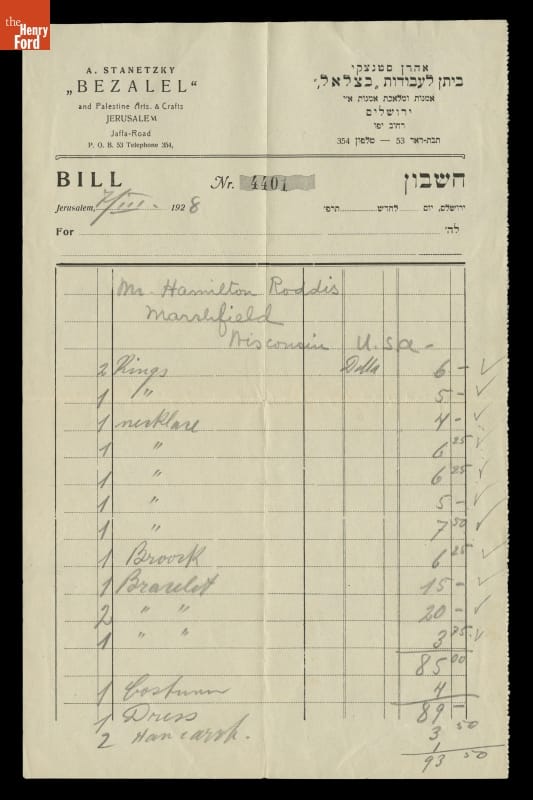 the
Henry
Ford
A. STANETZKY
„BEZALEL“
and Palestine Arts. & Crafts
JERUSALEM
Jaffa-Road
P. O. B. 53 Telephone 354,
אהרן סטנצקי
ביתן לעבודות „בצלאל”,
אמנות ומלאכת אמנות א״י
ירושלים
רחוב יפו
תבת-דאר 53 — טלפון 354
BILL Nr. 4401 חשבון
Jerusalem, 7/III. - 1928 ירושלים, יום לחדש תרפ״
For לה׳
Mr. Hamilton Roddis
Marshfield
Wisconsin U.S.a -
2 Rings Dolla 6 -
1 " 5 -
1 necklace 4 -
1 " 6 25
1 " 6 25
1 " 5 -
1 " 7 50
1 Broock 6 25
1 Bracelet 15 -
2 " " 20 -
1 " " 3 75
85 00
1 Costum 4
1 Dress 89 -
2 3 50
1
93 50